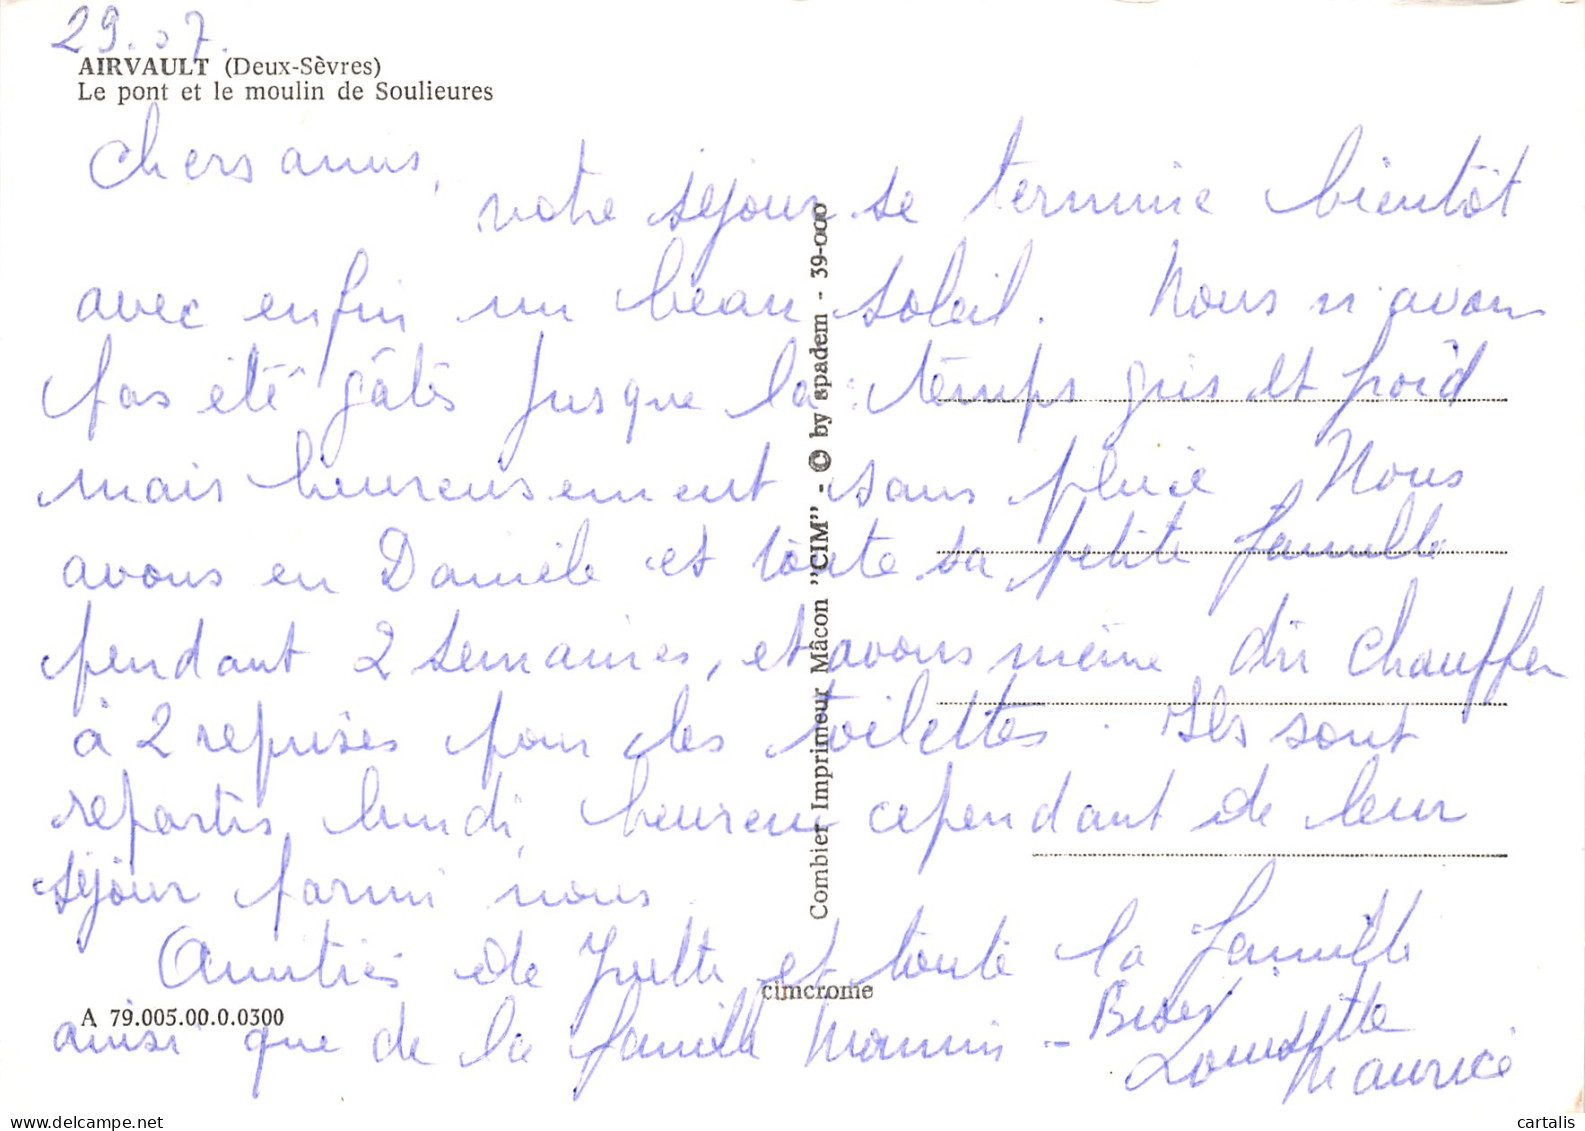 29.07.
AIRVAULT (Deux-Sèvres)
Le pont et le moulin de Soulieures
Chers amis,
votre séjour se termine bientôt
avec enfin un beau soleil. Nous n'avons
pas été gâtés jusque là : temps gris et froid
mais heureusement sans pluie Nous
avons eu Danièle et toute sa petite famille
pendant 2 semaines, et avons même dû chauffer
à 2 reprises pour les toilettes. Ils sont
repartis lundi, heureux cependant de leur
séjour parmi nous.
Amitiés de et toute la famille
ainsi que de la famille -
Louisette
Maurice
Combier Imprimeur Mâcon "CIM" - © by spadem - 39-000
cimcrome
A 79.005.00.0.0300
cartalis